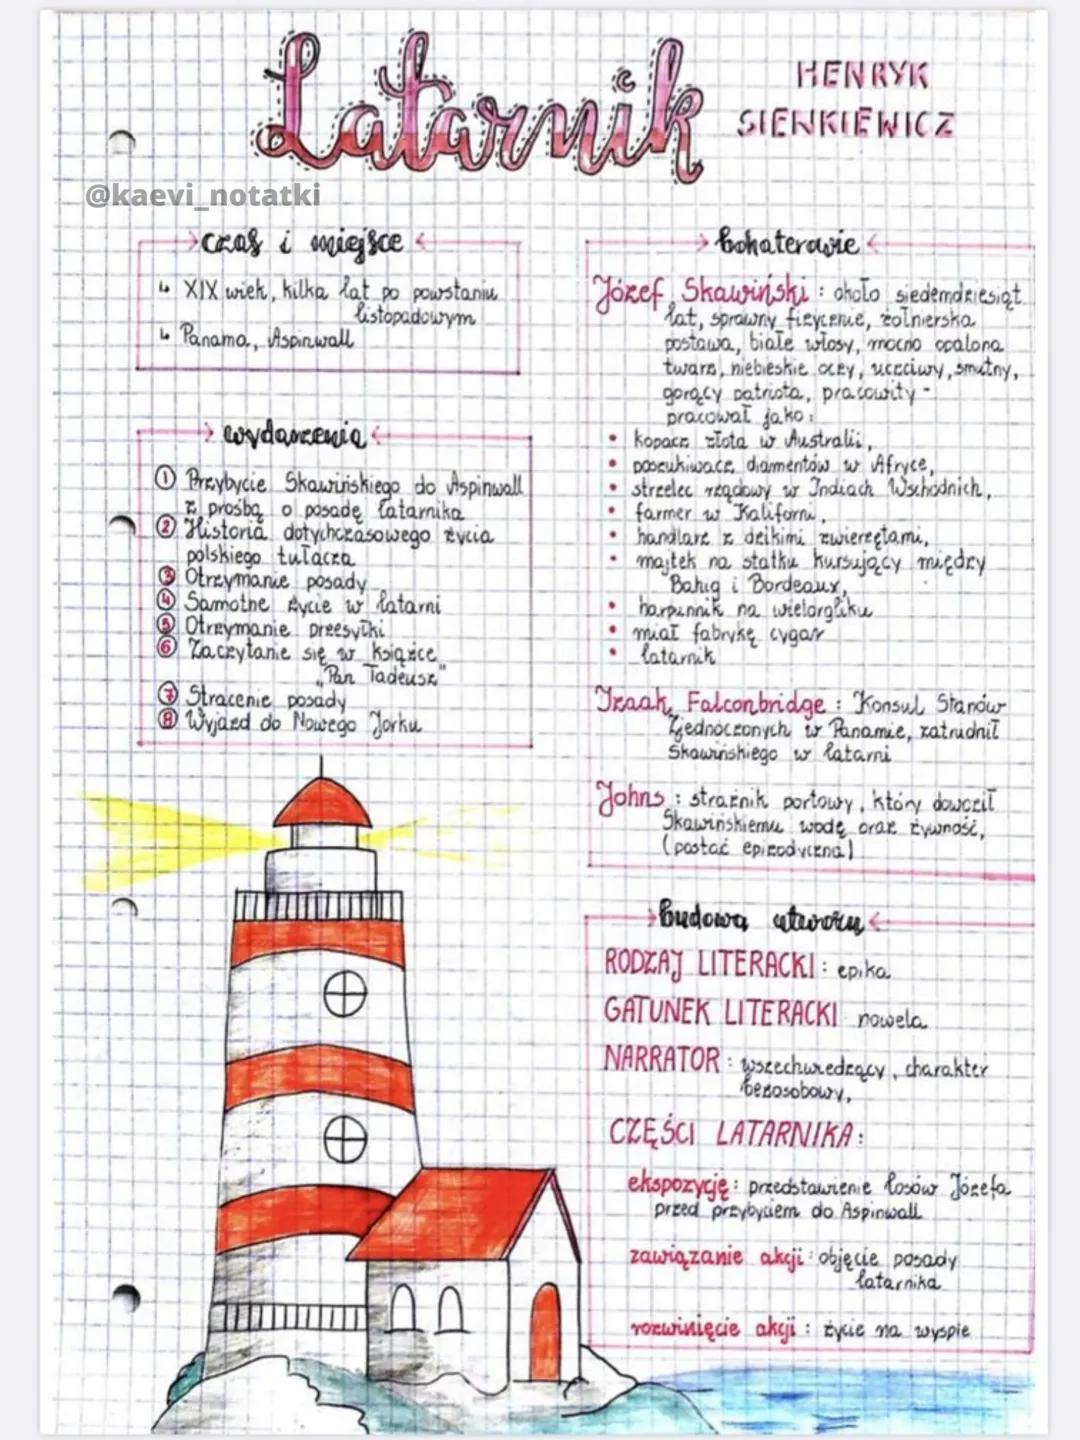 Latarnik
HENRYK
SIENKIEWICZ
@kaevi_notatki
czas i miejsce
↳ XIX wiek, kilka lat po powstaniu
listopadowym
↳ Panama, Aspinwall
wydarzenia
① Przybycie Skawińskiego do Aspinwall
z prośbą o posadę latarnika
② Historia dotychczasowego życia
polskiego tułacza
③ Otrzymanie posady
④ Samotne życie w latarni
⑤ Otrzymanie przesyłki
⑥ Zaczytanie się w książce
„Pan Tadeusz"
⑦ Stracenie posady
⑧ Wyjazd do Nowego Jorku
bohaterowie
Józef Skawiński : około siedemdziesiąt
lat, sprawny fizycznie, żołnierska
postawa, białe włosy, mocno opalona
twarz, niebieskie oczy, uczciwy, smutny,
gorący patriota, pracowity -
pracował jako:
• kopacz złota w Australii,
• poszukiwacz diamentów w Afryce,
• strzelec rządowy w Indiach Wschodnich,
• farmer w Kaliforni,
• handlarz z dzikimi zwierzętami,
• majtek na statku kursujący między
Bahią i Bordeaux,
• harpunnik na wielorybniku
• miał fabrykę cygar
• latarnik
Izaak Falconbridge : Konsul Stanów
Zjednoczonych w Panamie, zatrudnił
Skawińskiego w latarni
Johns : strażnik portowy, który dowoził
Skawińskiemu wodę oraz żywność,
(postać epizodyczna)
budowa utworu
RODZAJ LITERACKI : epika
GATUNEK LITERACKI nowela
NARRATOR : wszechwiedzący, charakter
bezosobowy,
CZĘŚCI LATARNIKA :
ekspozycję : przedstawienie losów Józefa
przed przybyciem do Aspinwall
zawiązanie akcji : objęcie posady
latarnika
rozwinięcie akcji : życie na wyspie